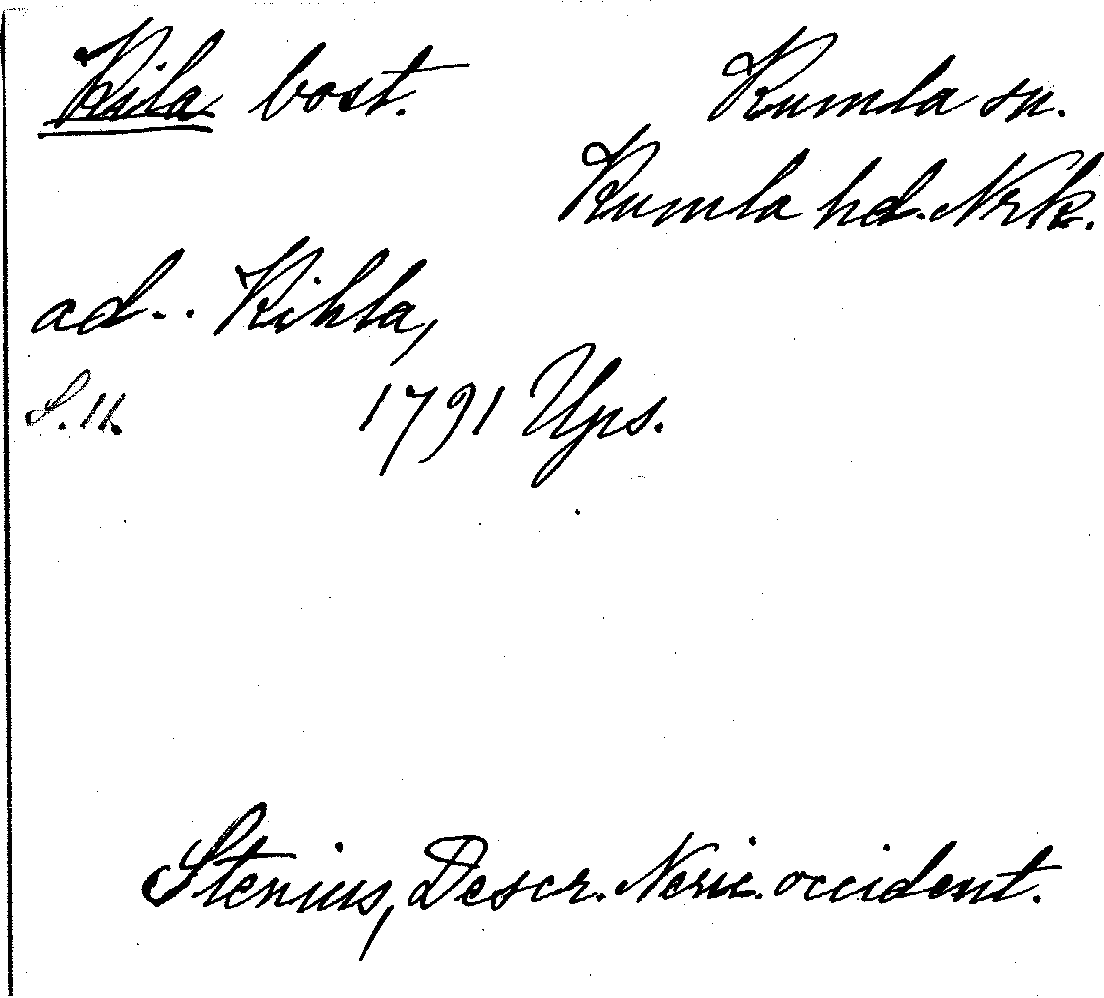 Kila bost. Kumla sn.
Kumla hd. Nrk.
ad.. Kihla,
S. 11. 1791 Ups.
Stenius, Descr. Neric. occident.